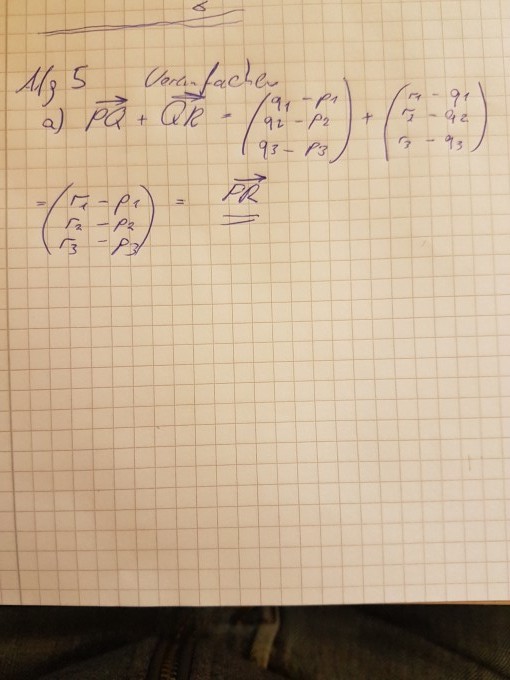 Afg 5 Vereinfachen
a) \overrightarrow{PQ} + \overrightarrow{QR} = \begin{pmatrix} q_1 - p_1 \\ q_2 - p_2 \\ q_3 - p_3 \end{pmatrix} + \begin{pmatrix} r_1 - q_1 \\ r_2 - q_2 \\ r_3 - q_3 \end{pmatrix}
= \begin{pmatrix} r_1 - p_1 \\ r_2 - p_2 \\ r_3 - p_3 \end{pmatrix} = \overrightarrow{PR}